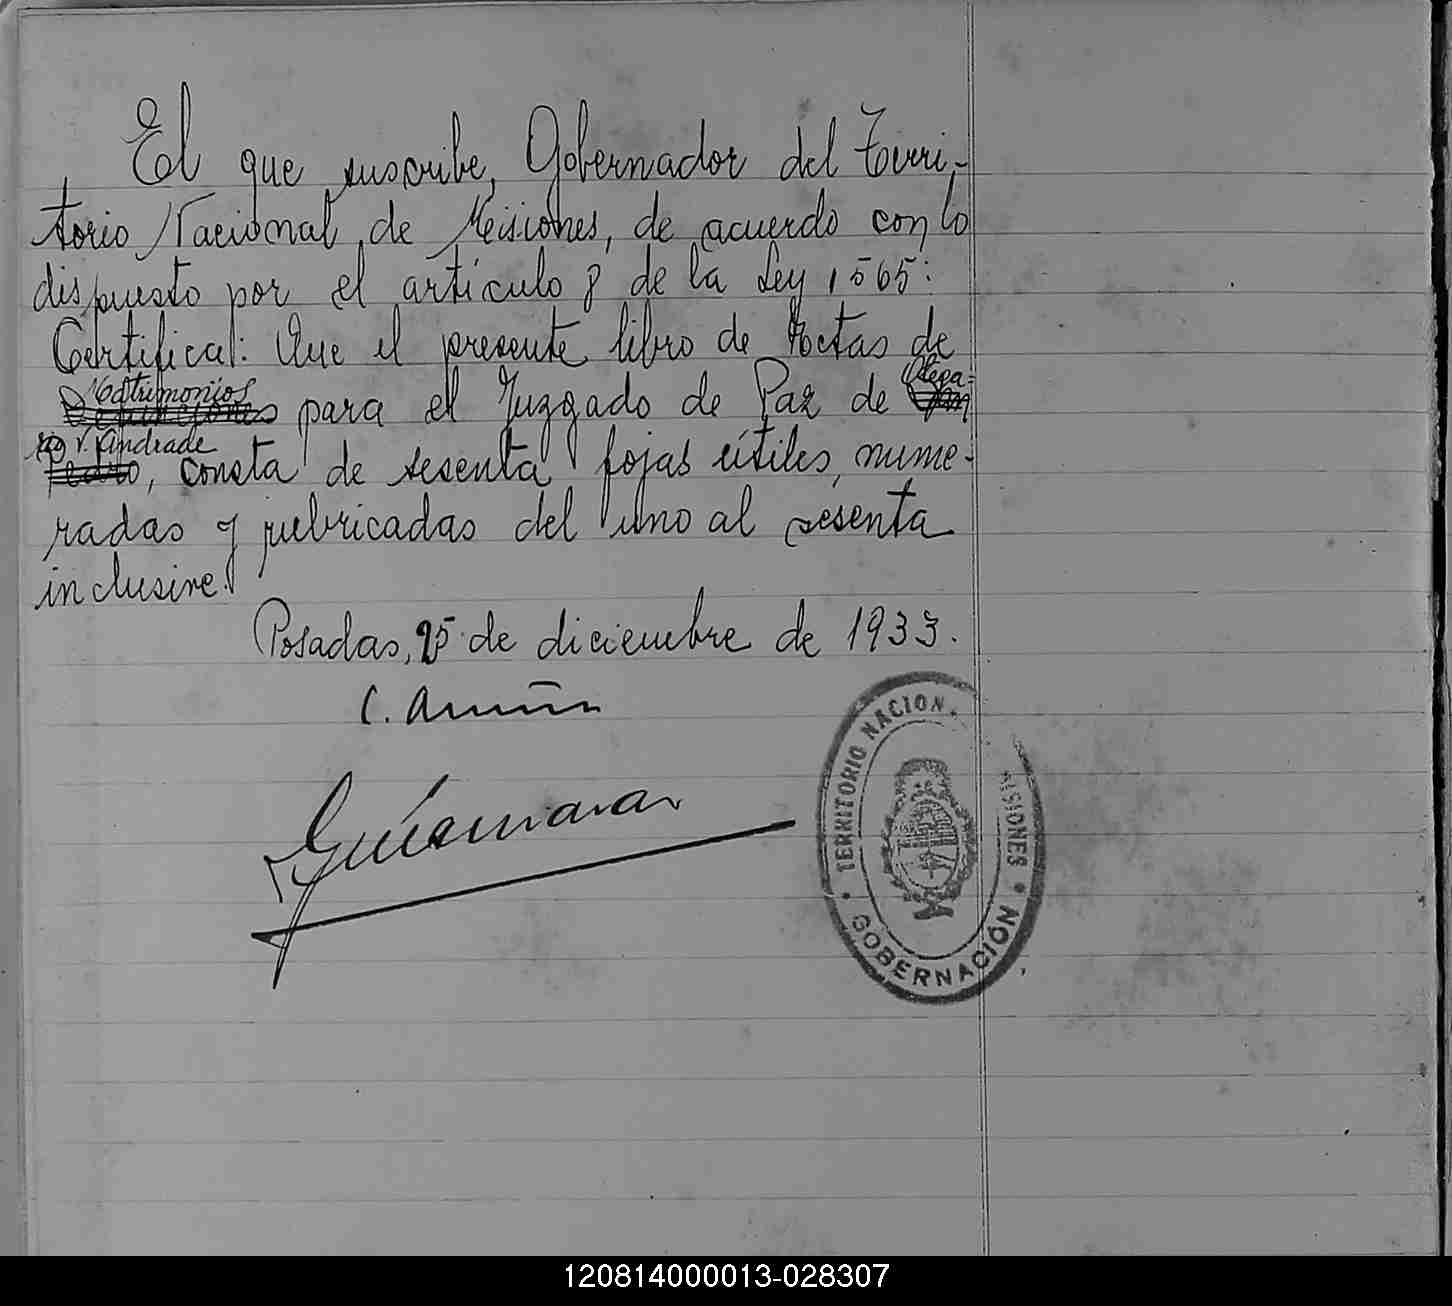 El que suscribe, Gobernador del Terri-
torio Nacional de Misiones, de acuerdo con lo
dispuesto por el artículo 8 de la Ley 1565:
Certifica: Que el presente libro de Actas de
Matrimonios Olega-
Defunciones para el Juzgado de Paz de San
rio V. Andrade
Pedro, consta de sesenta fojas útiles, nume-
radas y rubricadas del uno al sesenta
inclusive.
Posadas, 25 de diciembre de 1933.
C.
TERRITORIO NACION ISIONES
GOBERNACIÓN
120814000013-028307